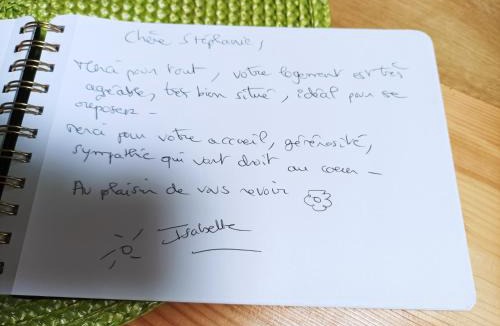 Chère Stéphanie,
Merci pour tout, votre logement est très
agréable, très bien situé, idéal pour se
reposer -
Merci pour votre accueil, générosité,
sympathie qui vont droit au coeur -
Au plaisir de vous revoir
Isabelle